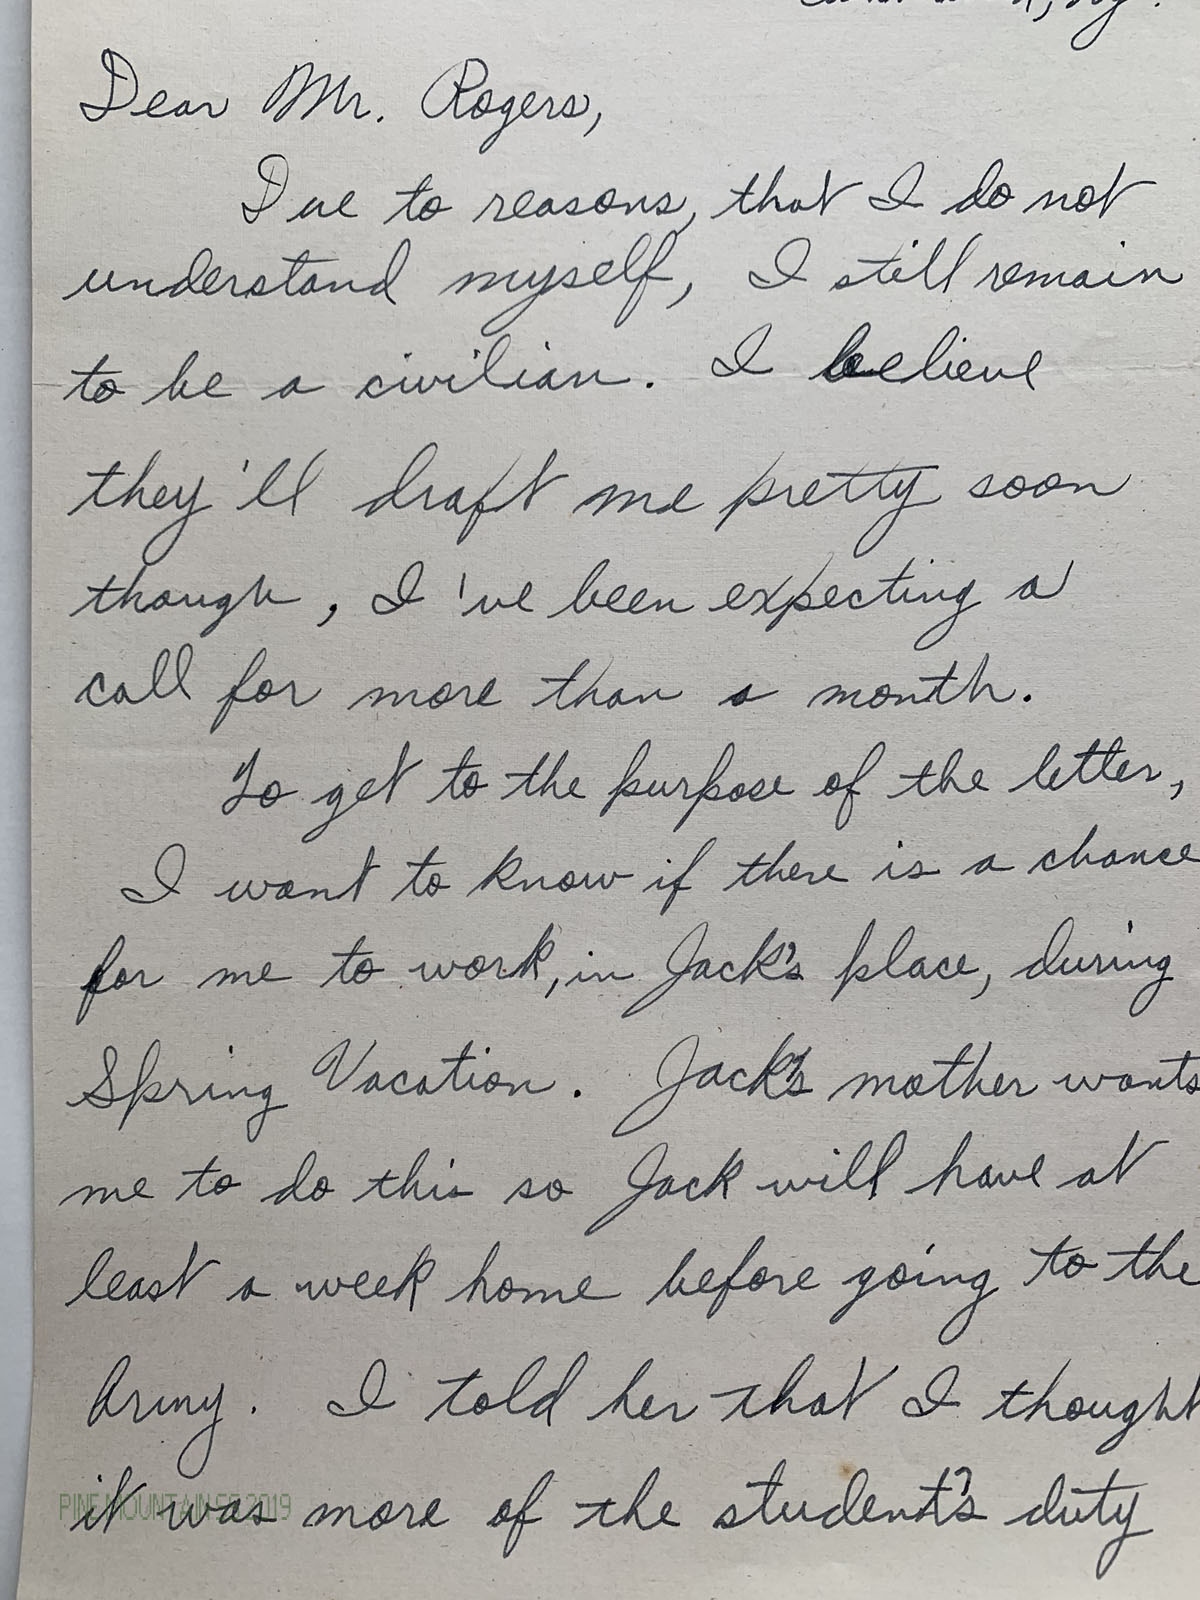 Dear Mr. Rogers,
Due to reasons, that I do not
understand myself, I still remain
to be a civilian. I believe
they'll draft me pretty soon
though, I've been expecting a
call for more than a month.
To get to the purpose of the letter,
I want to know if there is a chance
for me to work, in Jack's place, during
Spring Vacation. Jack's mother wants
me to do this so Jack will have at
least a week home before going to the
Army. I told her that I thought
it was more of the student's duty
PINE MOUNTAIN SS 2019